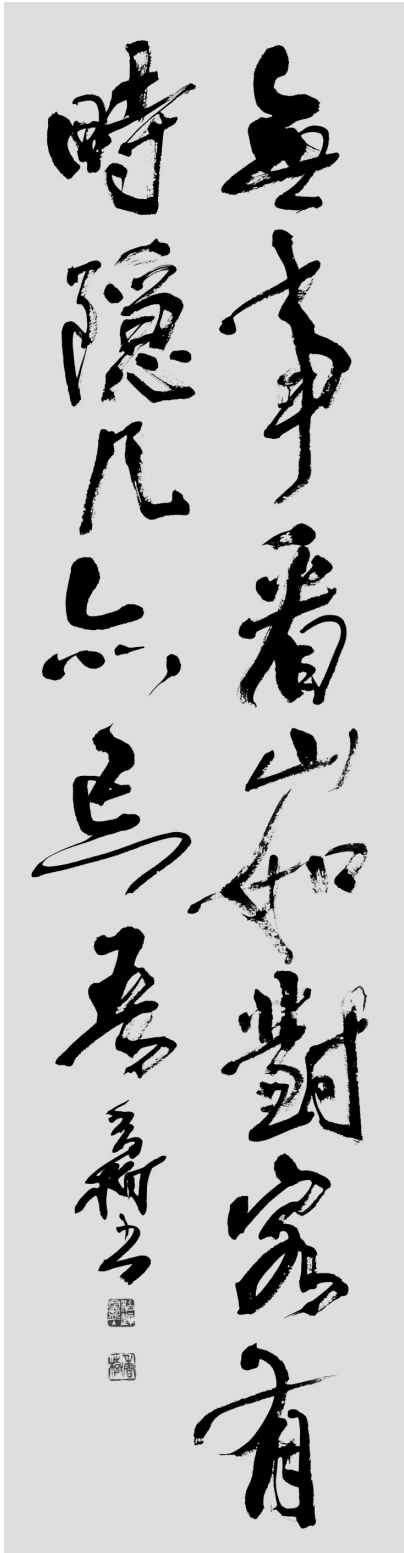 無事看山如對客有
時隱几亦忘吾
書